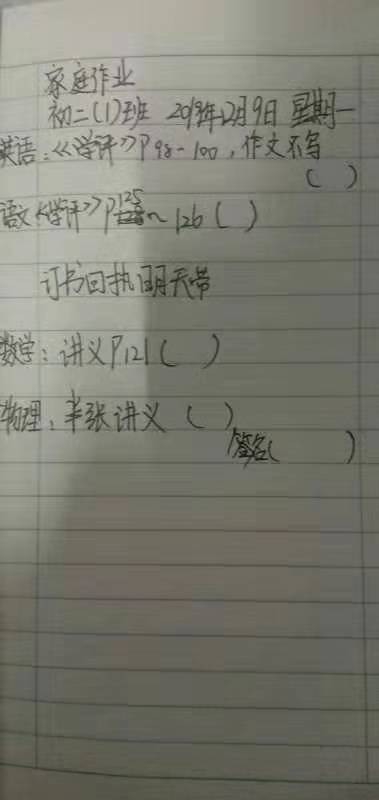 家庭作业
初二(1)班 2019年12月9日 星期一
英语:《学评》P98-100,作文不写
( )
语文《学评》P125~126( )
订书回执明天带
数学:讲义P121( )
物理:半张讲义 ( )
签名( )